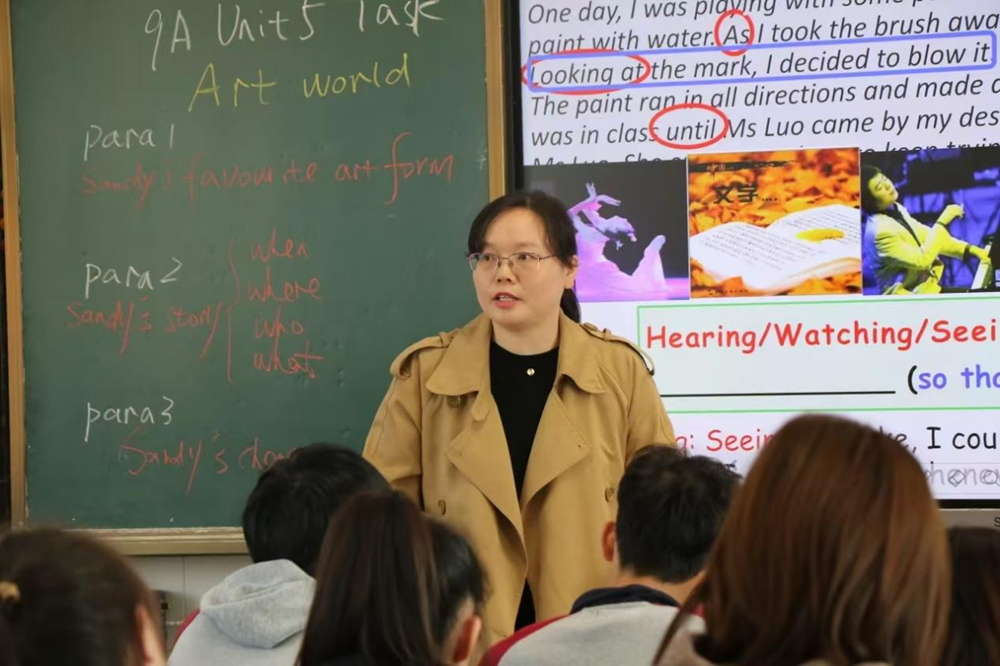 9A Unit 5 Task
Art world
para 1
Sandy's favourite art form
para 2
Sandy's story
when
where
who
what
para 3
Sandy's
One day, I was playing with some
paint with water. As I took the brush awa
Looking at the mark, I decided to blow it
The paint ran in all directions and made
was in class until Ms Luo came by my des
Ms Luo. She keep
文字
Hearing/Watching/Seei
(so tha
Seein I cou